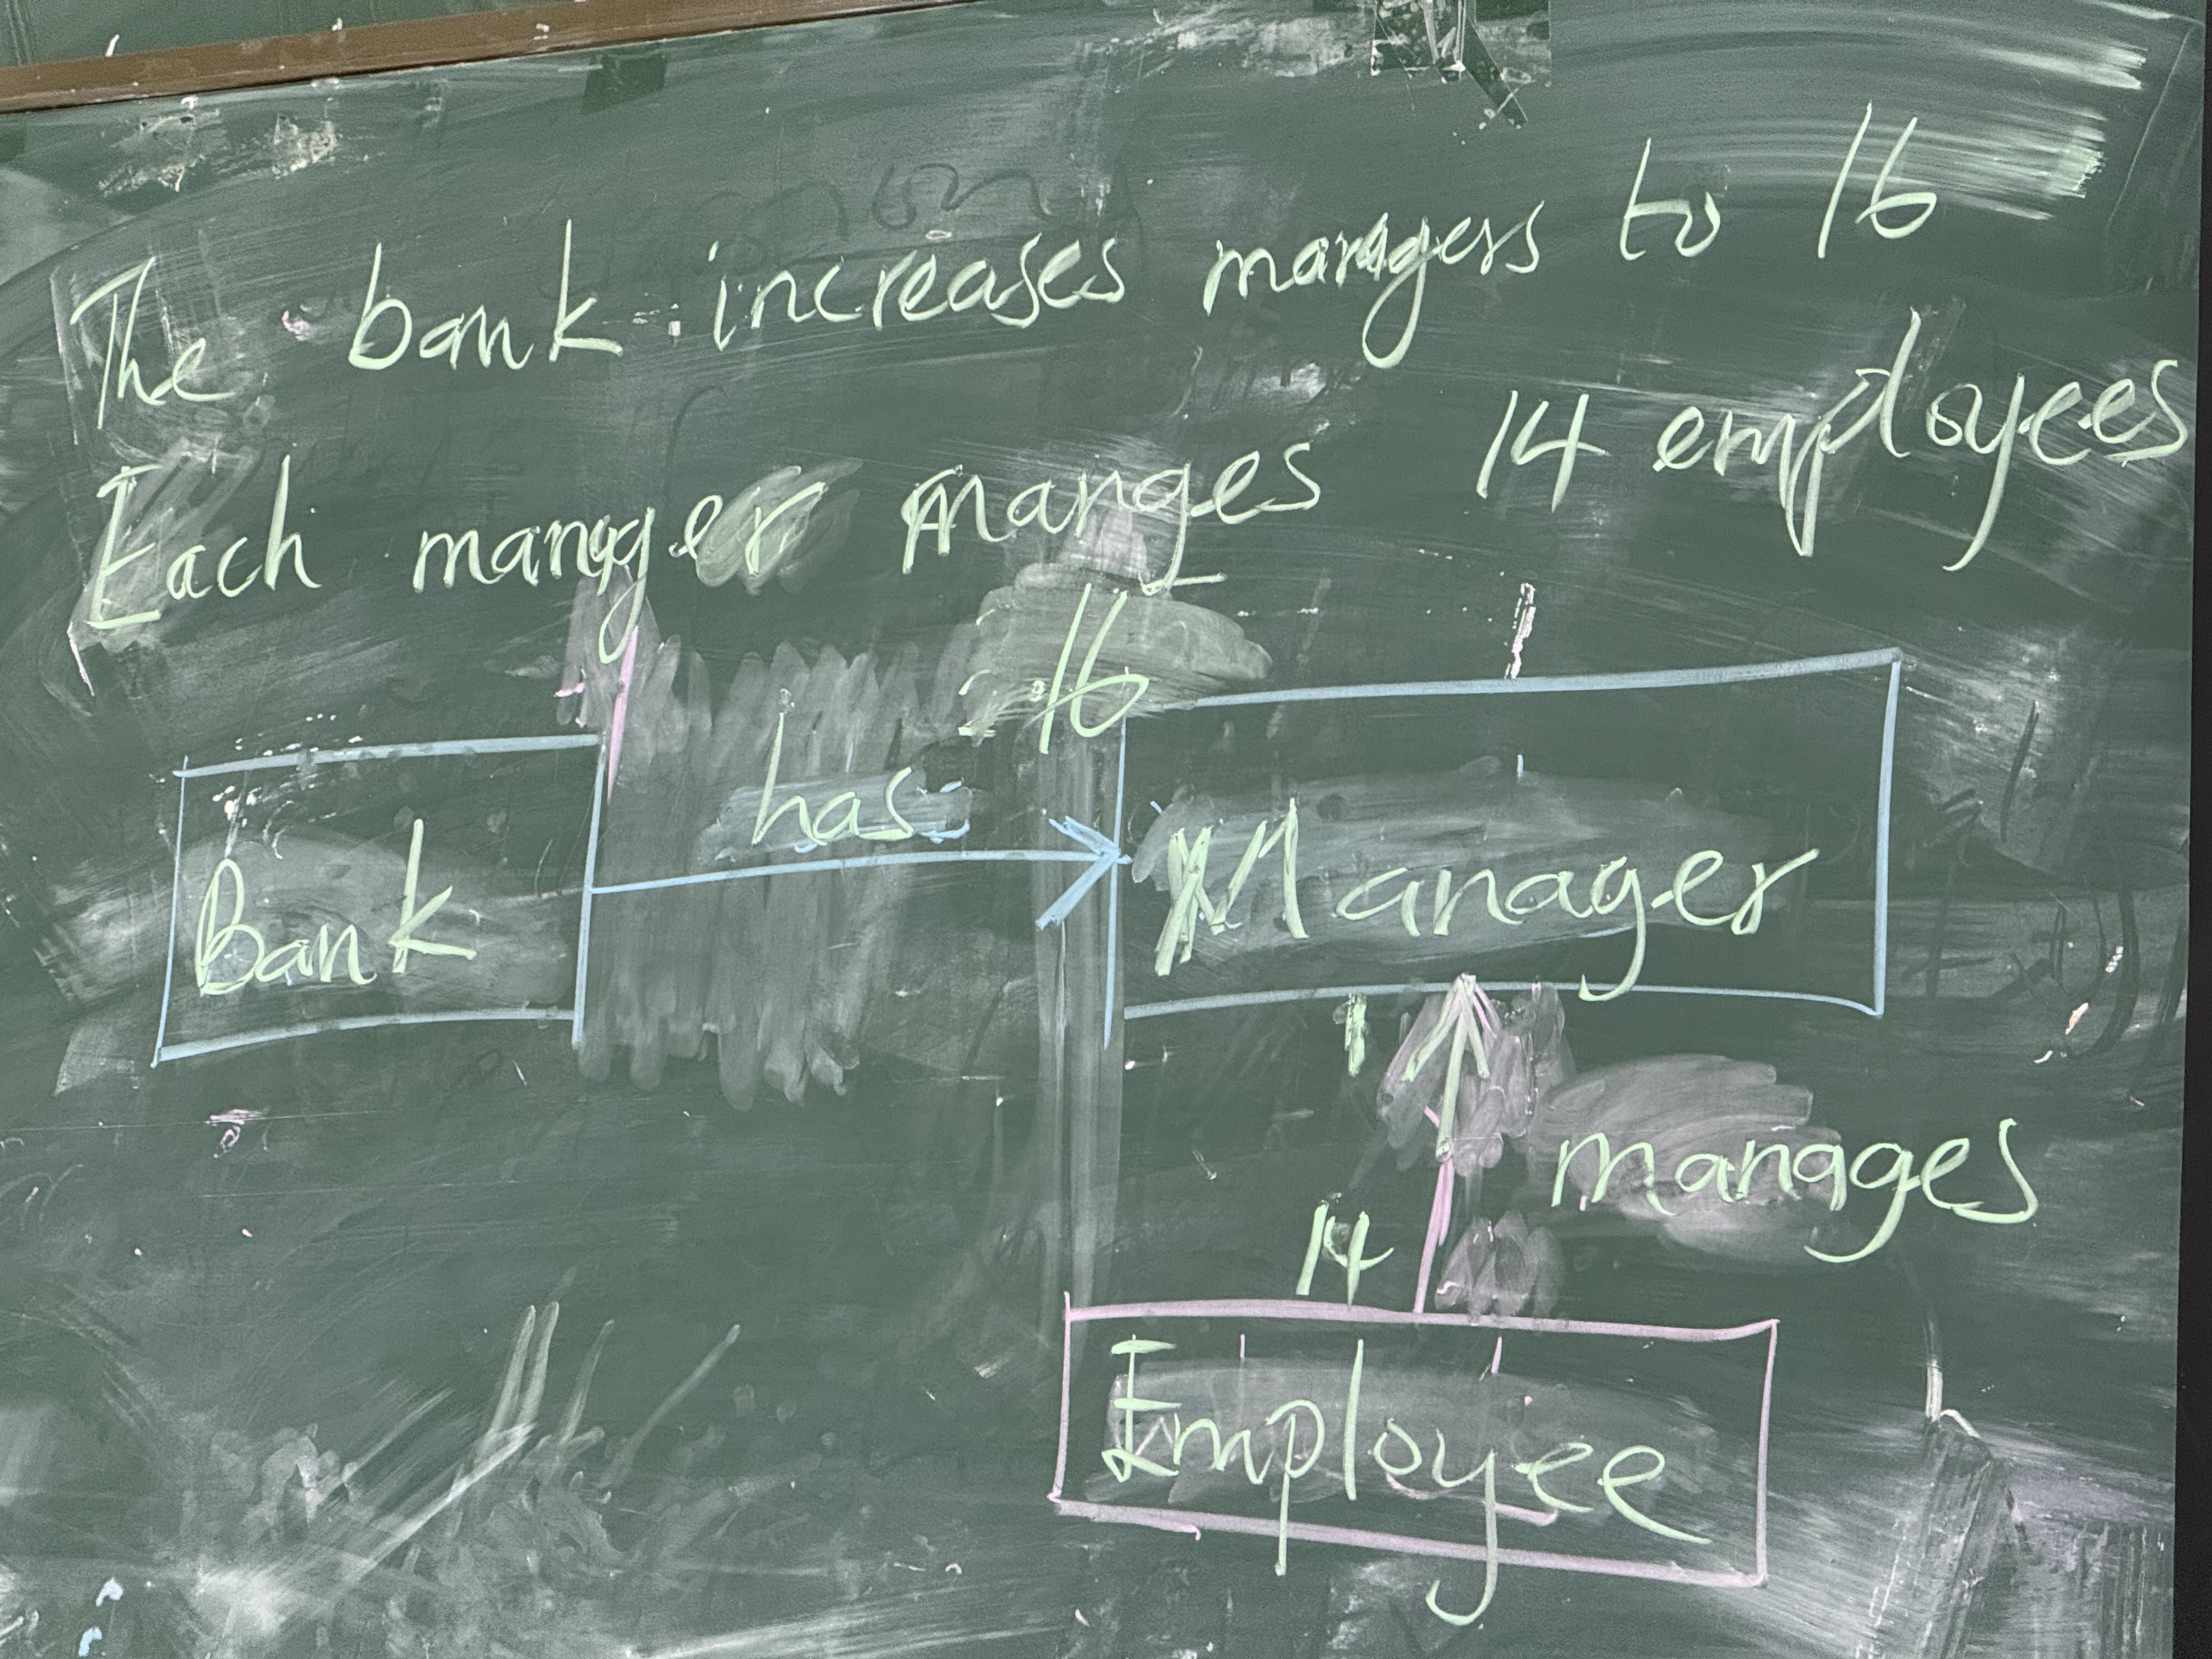 The bank increases managers to 16
Each manager manges 14 employees
16
has
Bank
Manager
1
manages
14
Employee